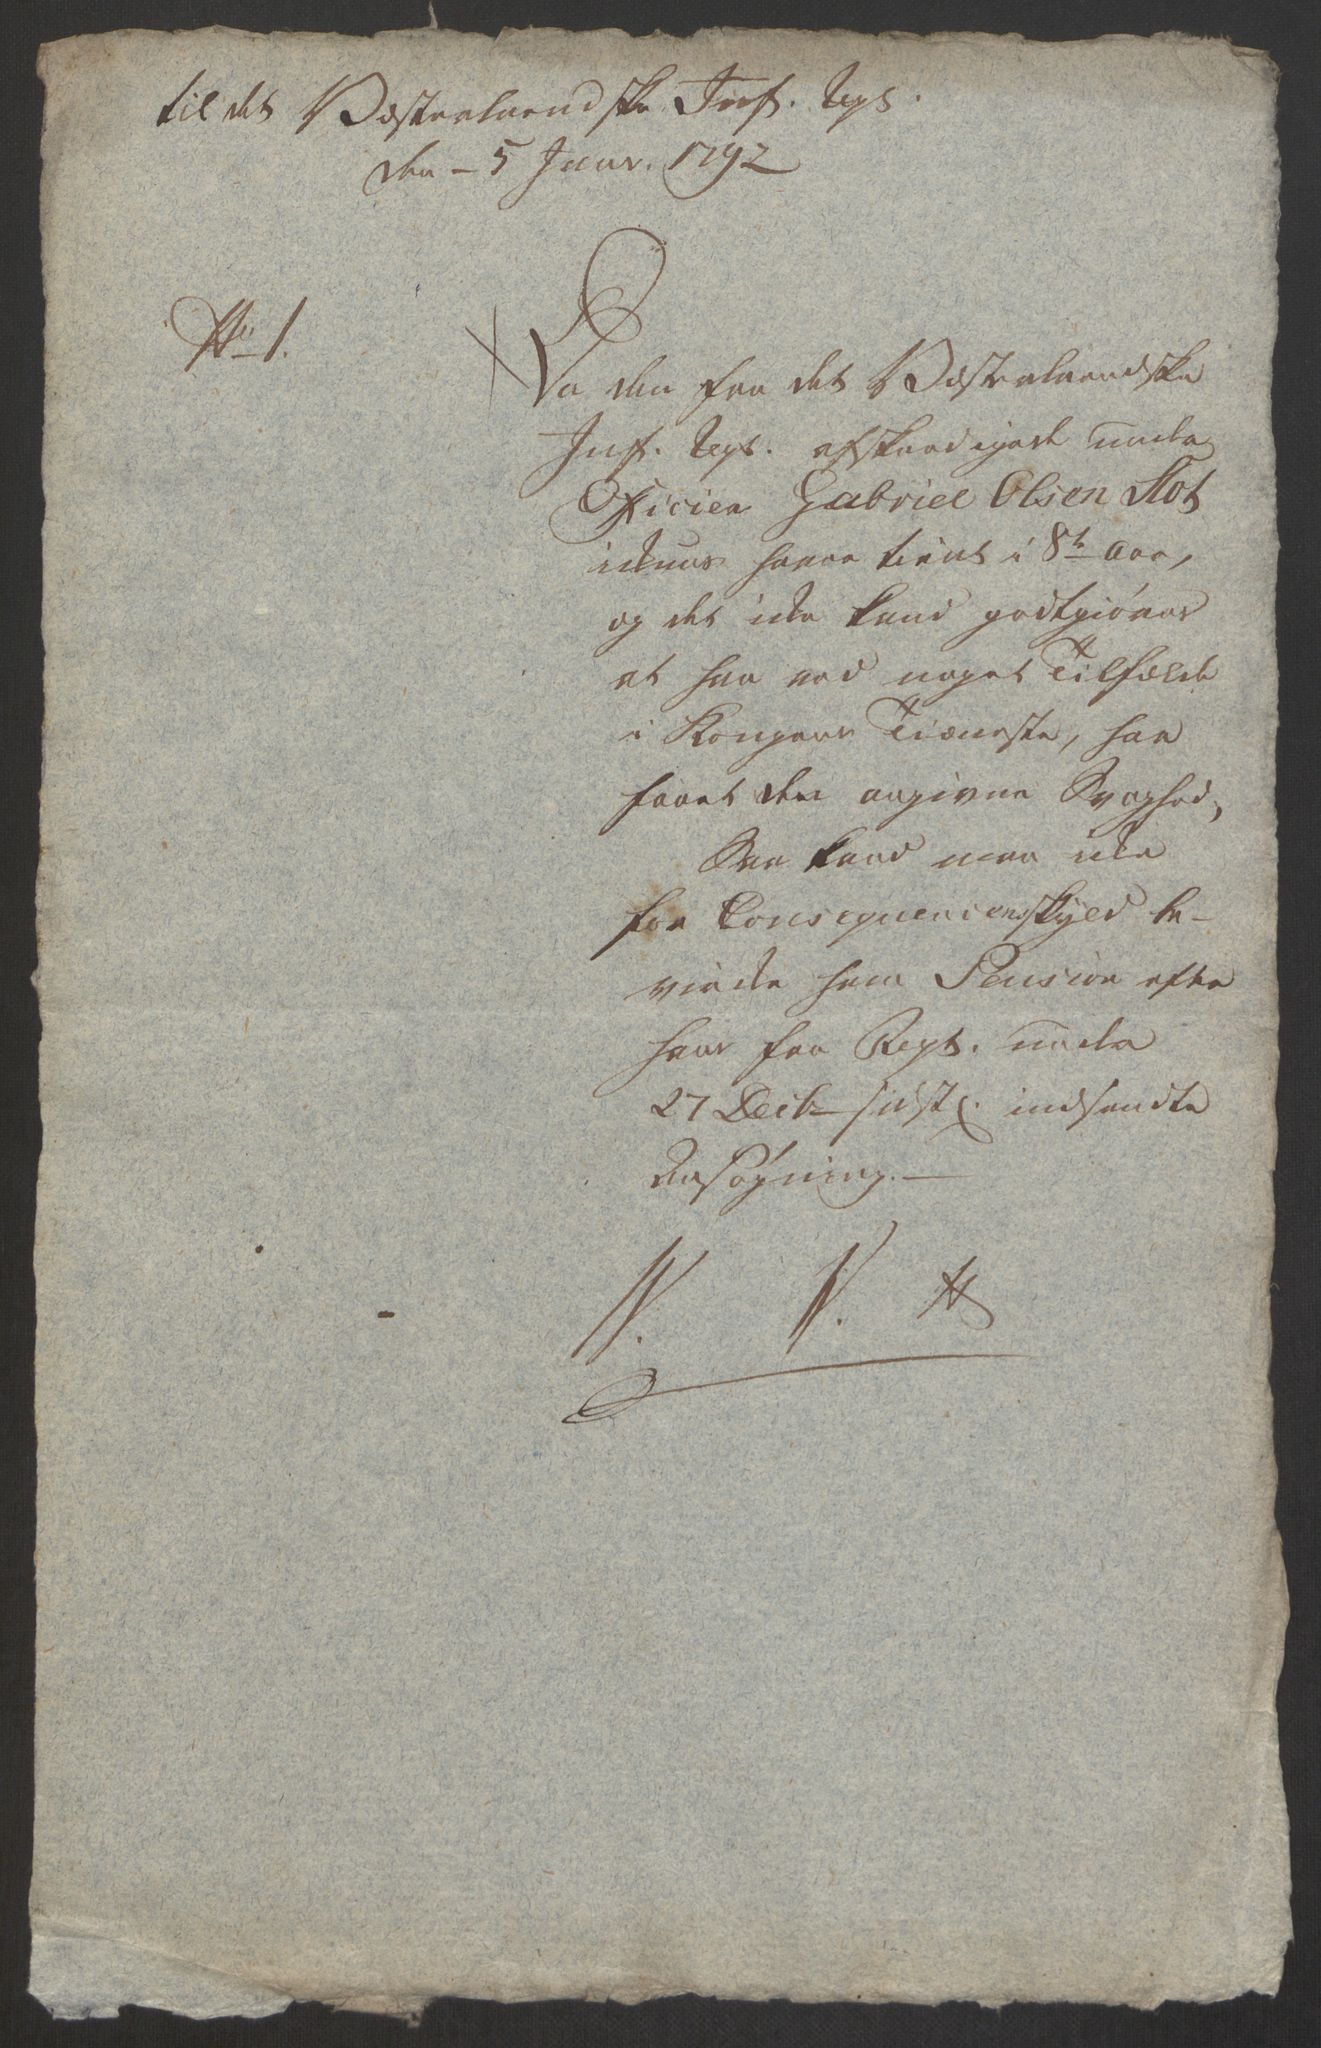 til det Vesterlandske Inf. Regt.
den 5 Janr. 1792
No 1.
Da den fra det Vesterlandske
Inf. Regt. afskeedigede under
Officier Gabriel Olsen Slot
ickuns haver tient i 8te Aar,
og det icke kand godtgiöres
at han ved noget Tilfælde
i Kongens Tieneste, har
faaet den angivne Svaghed,
Saa kand man icke
for Consequencens skyld be-
virke ham Pension efter
hans fra Regt. under
27 Decbr sidstl. indsendte
Ansøgning. —
N. N.